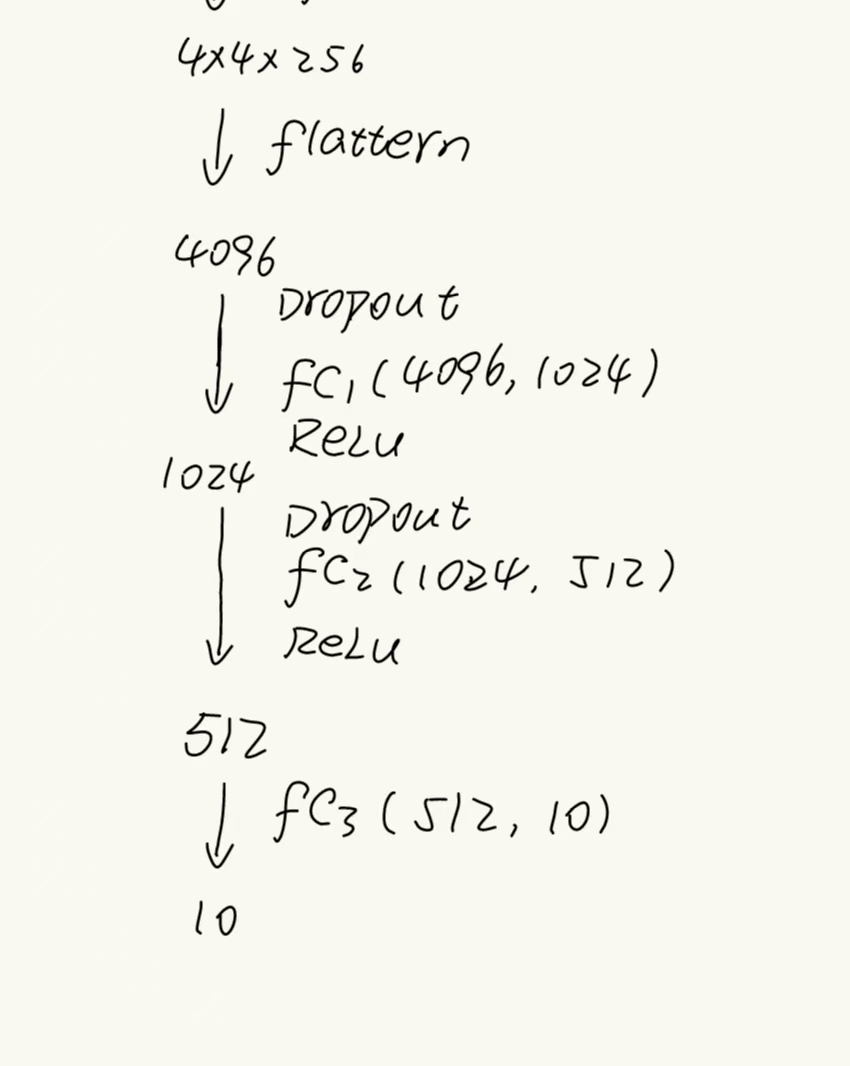 4×4×256
↓ flattern
4096
Dropout
↓ fC1(4096, 1024)
ReLu
1024
Dropout
↓ fC2(1024, 512)
ReLu
512
↓ fC3(512, 10)
10